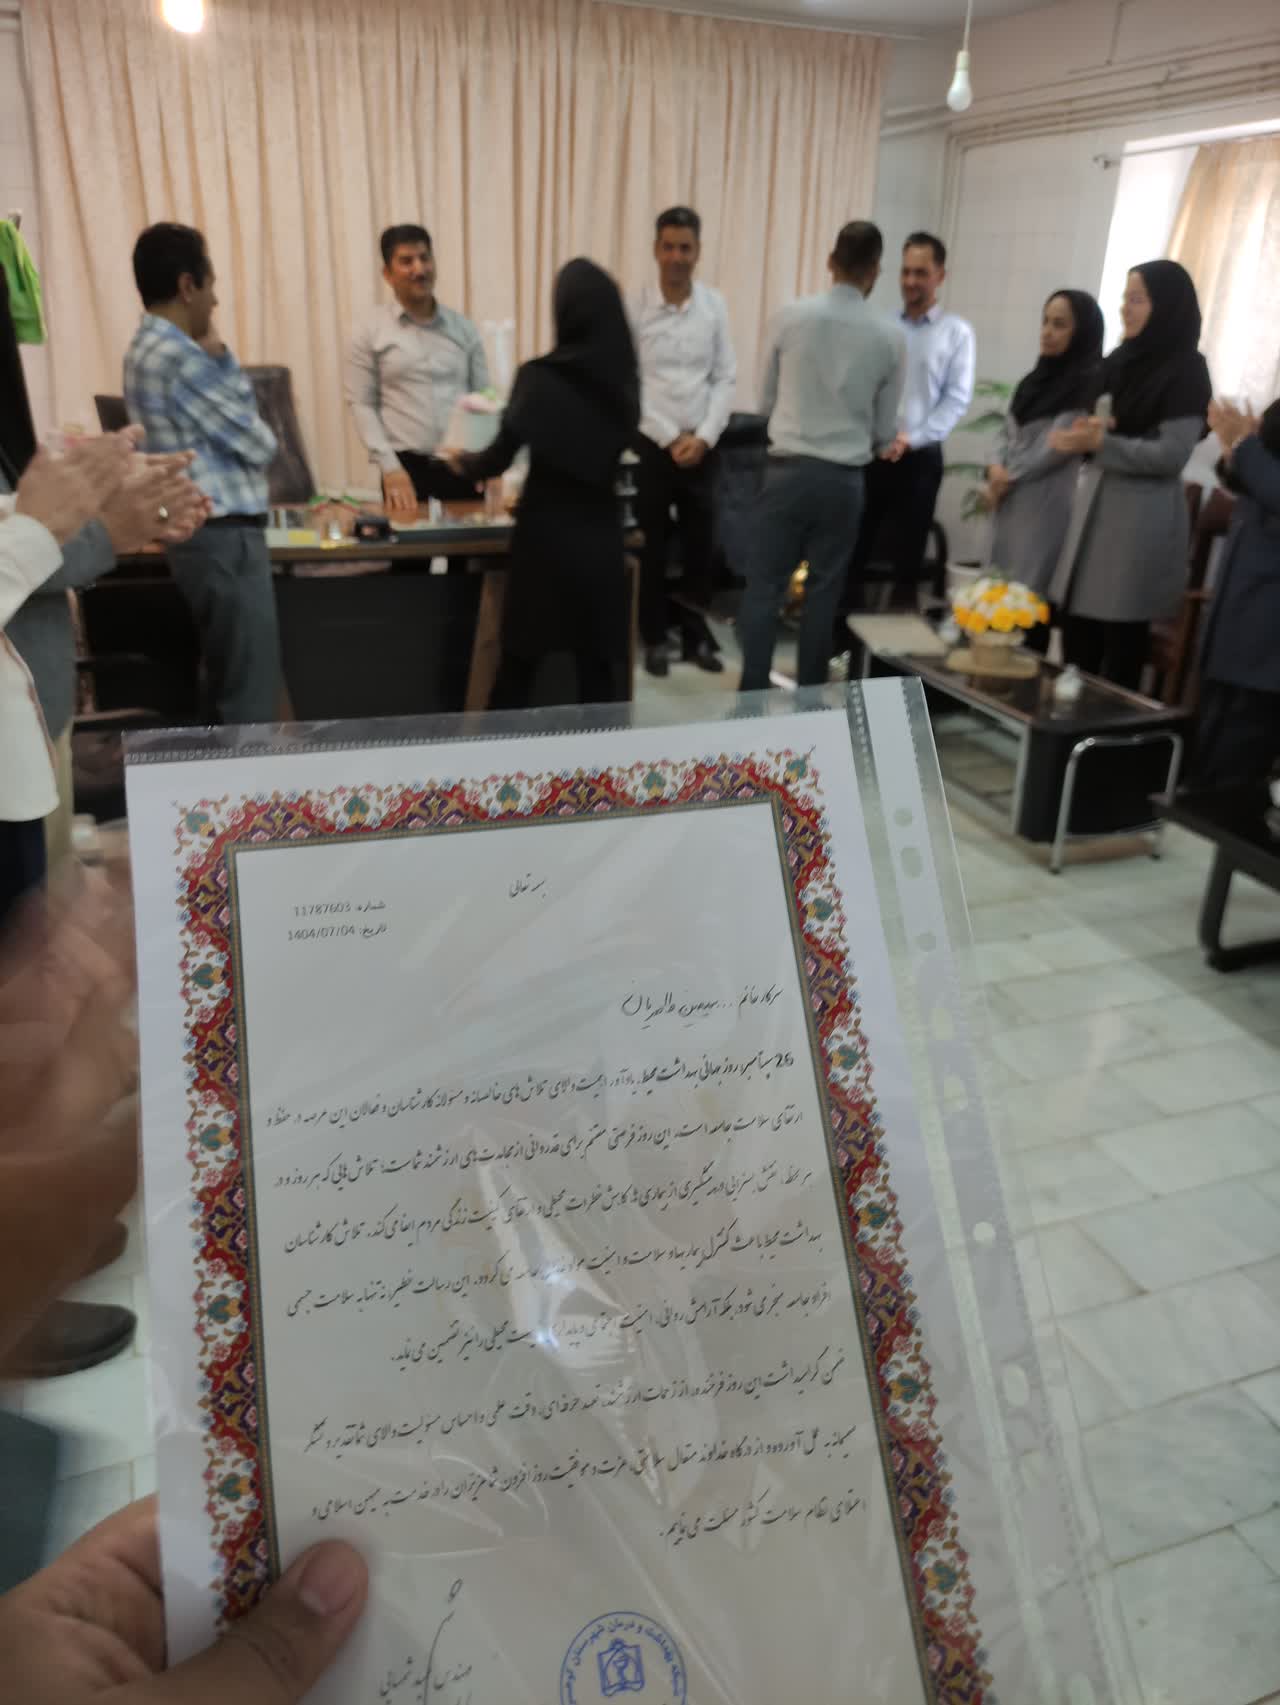 بسمه تعالی
شماره: 11787603
تاریخ: 1404/07/04
سرکار خانم ... سیمین طاهریان
26 سپتامبر، روز جهانی بهداشت محیط، یادآور اهمیت والای تلاش‌های خالصانه و مسئولانه کارشناسان و فعالان این عرصه در حفظ و
ارتقای سلامت جامعه است. این روز فرصتی مغتنم برای قدردانی از مجاهدت‌های ارزشمند شماست؛ تلاش‌هایی که هر روز و در
هر لحظه، نقش بسزایی در پیشگیری از بیماری‌ها، کاهش خطرات محیطی و ارتقای کیفیت زندگی مردم ایفا می‌کند. تلاش کارشناسان
بهداشت محیط باعث کنترل بیماریها و سلامت و امنیت مواد غذایی جامعه می گردد. این رسالت خطیر، نه تنها به سلامت جسمی
افراد جامعه منجر می شود، بلکه آرامش روانی، امنیت اجتماعی و پایداری زیست محیطی را نیز تضمین می نماید.
ضمن گرامیداشت این روز فرخنده، از زحمات ارزشمند، تعهد حرفه‌ای، دقت علمی و احساس مسئولیت والای شما تقدیر و تشکر
صمیمانه به عمل آورده و از درگاه خداوند متعال سلامتی، عزت و موفقیت روز افزون شما عزیزان را در خدمت به میهن اسلامی و
اعتلای نظام سلامت کشور مسئلت می نمایم.
مهندس شمسائی
شبکه بهداشت و درمان شهرستان